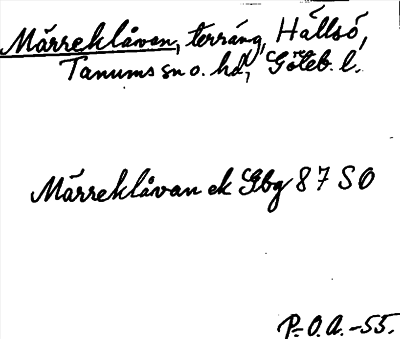 Märreklåvan, terräng, Hällsö,
Tanums sn o. hd, Göteb. l.
Märreklåvan ek Gbg 87 SO
P.O.A. -55.